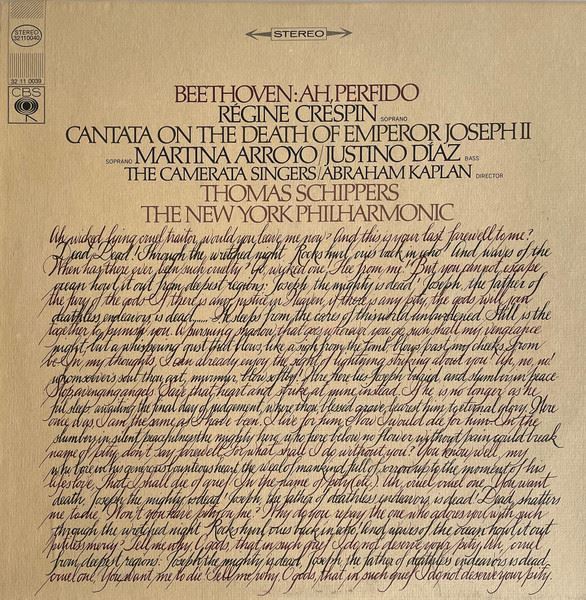 STEREO
STEREO
32110040
32 11 0039
CBS
BEETHOVEN: AH, PERFIDO
RÉGINE CRESPIN SOPRANO
CANTATA ON THE DEATH OF EMPEROR JOSEPH II
SOPRANO MARTINA ARROYO/JUSTINO DÍAZ BASS
THE CAMERATA SINGERS/ABRAHAM KAPLAN DIRECTOR
THOMAS SCHIPPERS
THE NEW YORK PHILHARMONIC
Ah, wicked lying cruel traitor, would you leave me now? And this is your last farewell to me?
Dead, Dead! Through the wretched night Rocks howl it out And waves of the
When has there ever been such cruelty? Go, wicked one, flee from me! But you cannot escape
ocean howl it out from deepest regions: Joseph the mighty is dead! Joseph, the father of
the fury of the gods. If there is any justice in Heaven, if there is any pity, the gods will join
deathless endeavors, is dead...... He sleeps from the cares of this world unburdened. Still is the
together to punish you. A pursuing shadow, that goes wherever you go, such shall my vengeance
night, but a whispering gust still blows, like a sigh from the tomb, blows past my cheeks. From
be. In my thoughts, I can already enjoy the sight of lightning striking about you. Ah, no, no!
whomsoever's soul thou art, murmur, blow softly! Here lies Joseph buried, and slumbers in peace
Stop avenging angels! Save that heart and strike at mine instead. If he is no longer as he
ful sleep, awaiting the final day of judgement, where thou, blessed grave, bearest him to eternal glory. Here
once was, I am the same as I have been. I live for him. Now I would die for him. In the
slumbers in silent peacefulness the mighty hero, who here below no flower without pain could break
name of pity, don't say farewell. For what shall I do without you? You know well, my
who bore in his generous bounteous heart the weal of mankind full of sorrow up to the moment of his
life's love, that I shall die of grief. (In the name of pity etc.) Ah, cruel, cruel one! You want
death. Joseph the mighty is dead! Joseph the father of deathless endeavors is dead! Dead,
me to die. Won't you have pity on me? Why do you repay the one who adores you with such
through the wretched night. Rocks howl it out And waves of the ocean howl it out
pitiless mercy? Tell me why, O gods, that, in such grief I do not deserve your pity. Ah, cruel
from deepest regions: Joseph the mighty is dead, Joseph the father of deathless endeavors is dead.
cruel one! You want me to die! Tell me why, O gods, that, in such grief I do not deserve your pity.